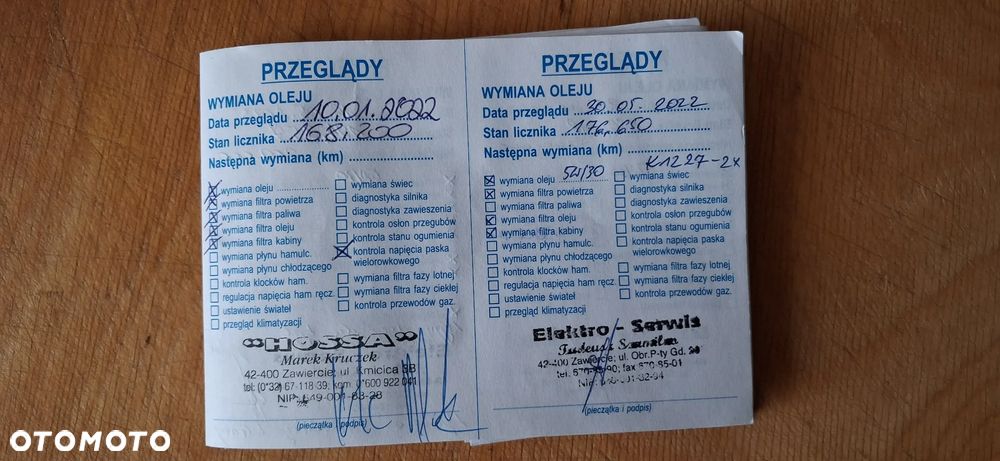 PRZEGLĄDY
WYMIANA OLEJU
Data przeglądu 10.01.2022
Stan licznika 168.200
Następna wymiana (km)
wymiana oleju
wymiana filtra powietrza
wymiana filtra paliwa
wymiana filtra oleju
wymiana filtra kabiny
wymiana płynu hamulc.
wymiana płynu chłodzącego
kontrola klocków ham.
regulacja napięcia ham ręcz.
ustawienie świateł
przegląd klimatyzacji
wymiana świec
diagnostyka silnika
diagnostyka zawieszenia
kontrola osłon przegubów
kontrola stanu ogumienia
kontrola napięcia paska
wielorowkowego
wymiana filtra fazy lotnej
wymiana filtra fazy ciekłej
kontrola przewodów gaz.
"HOSSA"
Marek Kruczek
42-400 Zawiercie; ul. Kmicica 3B
tel: (0*32) 67-118-39; kom. 0*600 922 041
NIP: 649-001-83-28
(pieczątka i podpis)
PRZEGLĄDY
WYMIANA OLEJU
Data przeglądu 30.05.2022
Stan licznika 176.650
Następna wymiana (km)
K1227-2x
wymiana oleju 5W/30
wymiana filtra powietrza
wymiana filtra paliwa
wymiana filtra oleju
wymiana filtra kabiny
wymiana płynu hamulc.
wymiana płynu chłodzącego
kontrola klocków ham.
regulacja napięcia ham ręcz.
ustawienie świateł
przegląd klimatyzacji
wymiana świec
diagnostyka silnika
diagnostyka zawieszenia
kontrola osłon przegubów
kontrola stanu ogumienia
kontrola napięcia paska
wielorowkowego
wymiana filtra fazy lotnej
wymiana filtra fazy ciekłej
kontrola przewodów gaz.
Elektro - Serwis
Tadeusz
42-400 Zawiercie; ul. Obr.P-ty Gd.
fax 670-85-01
(pieczątka i podpis)
OTOMOTO